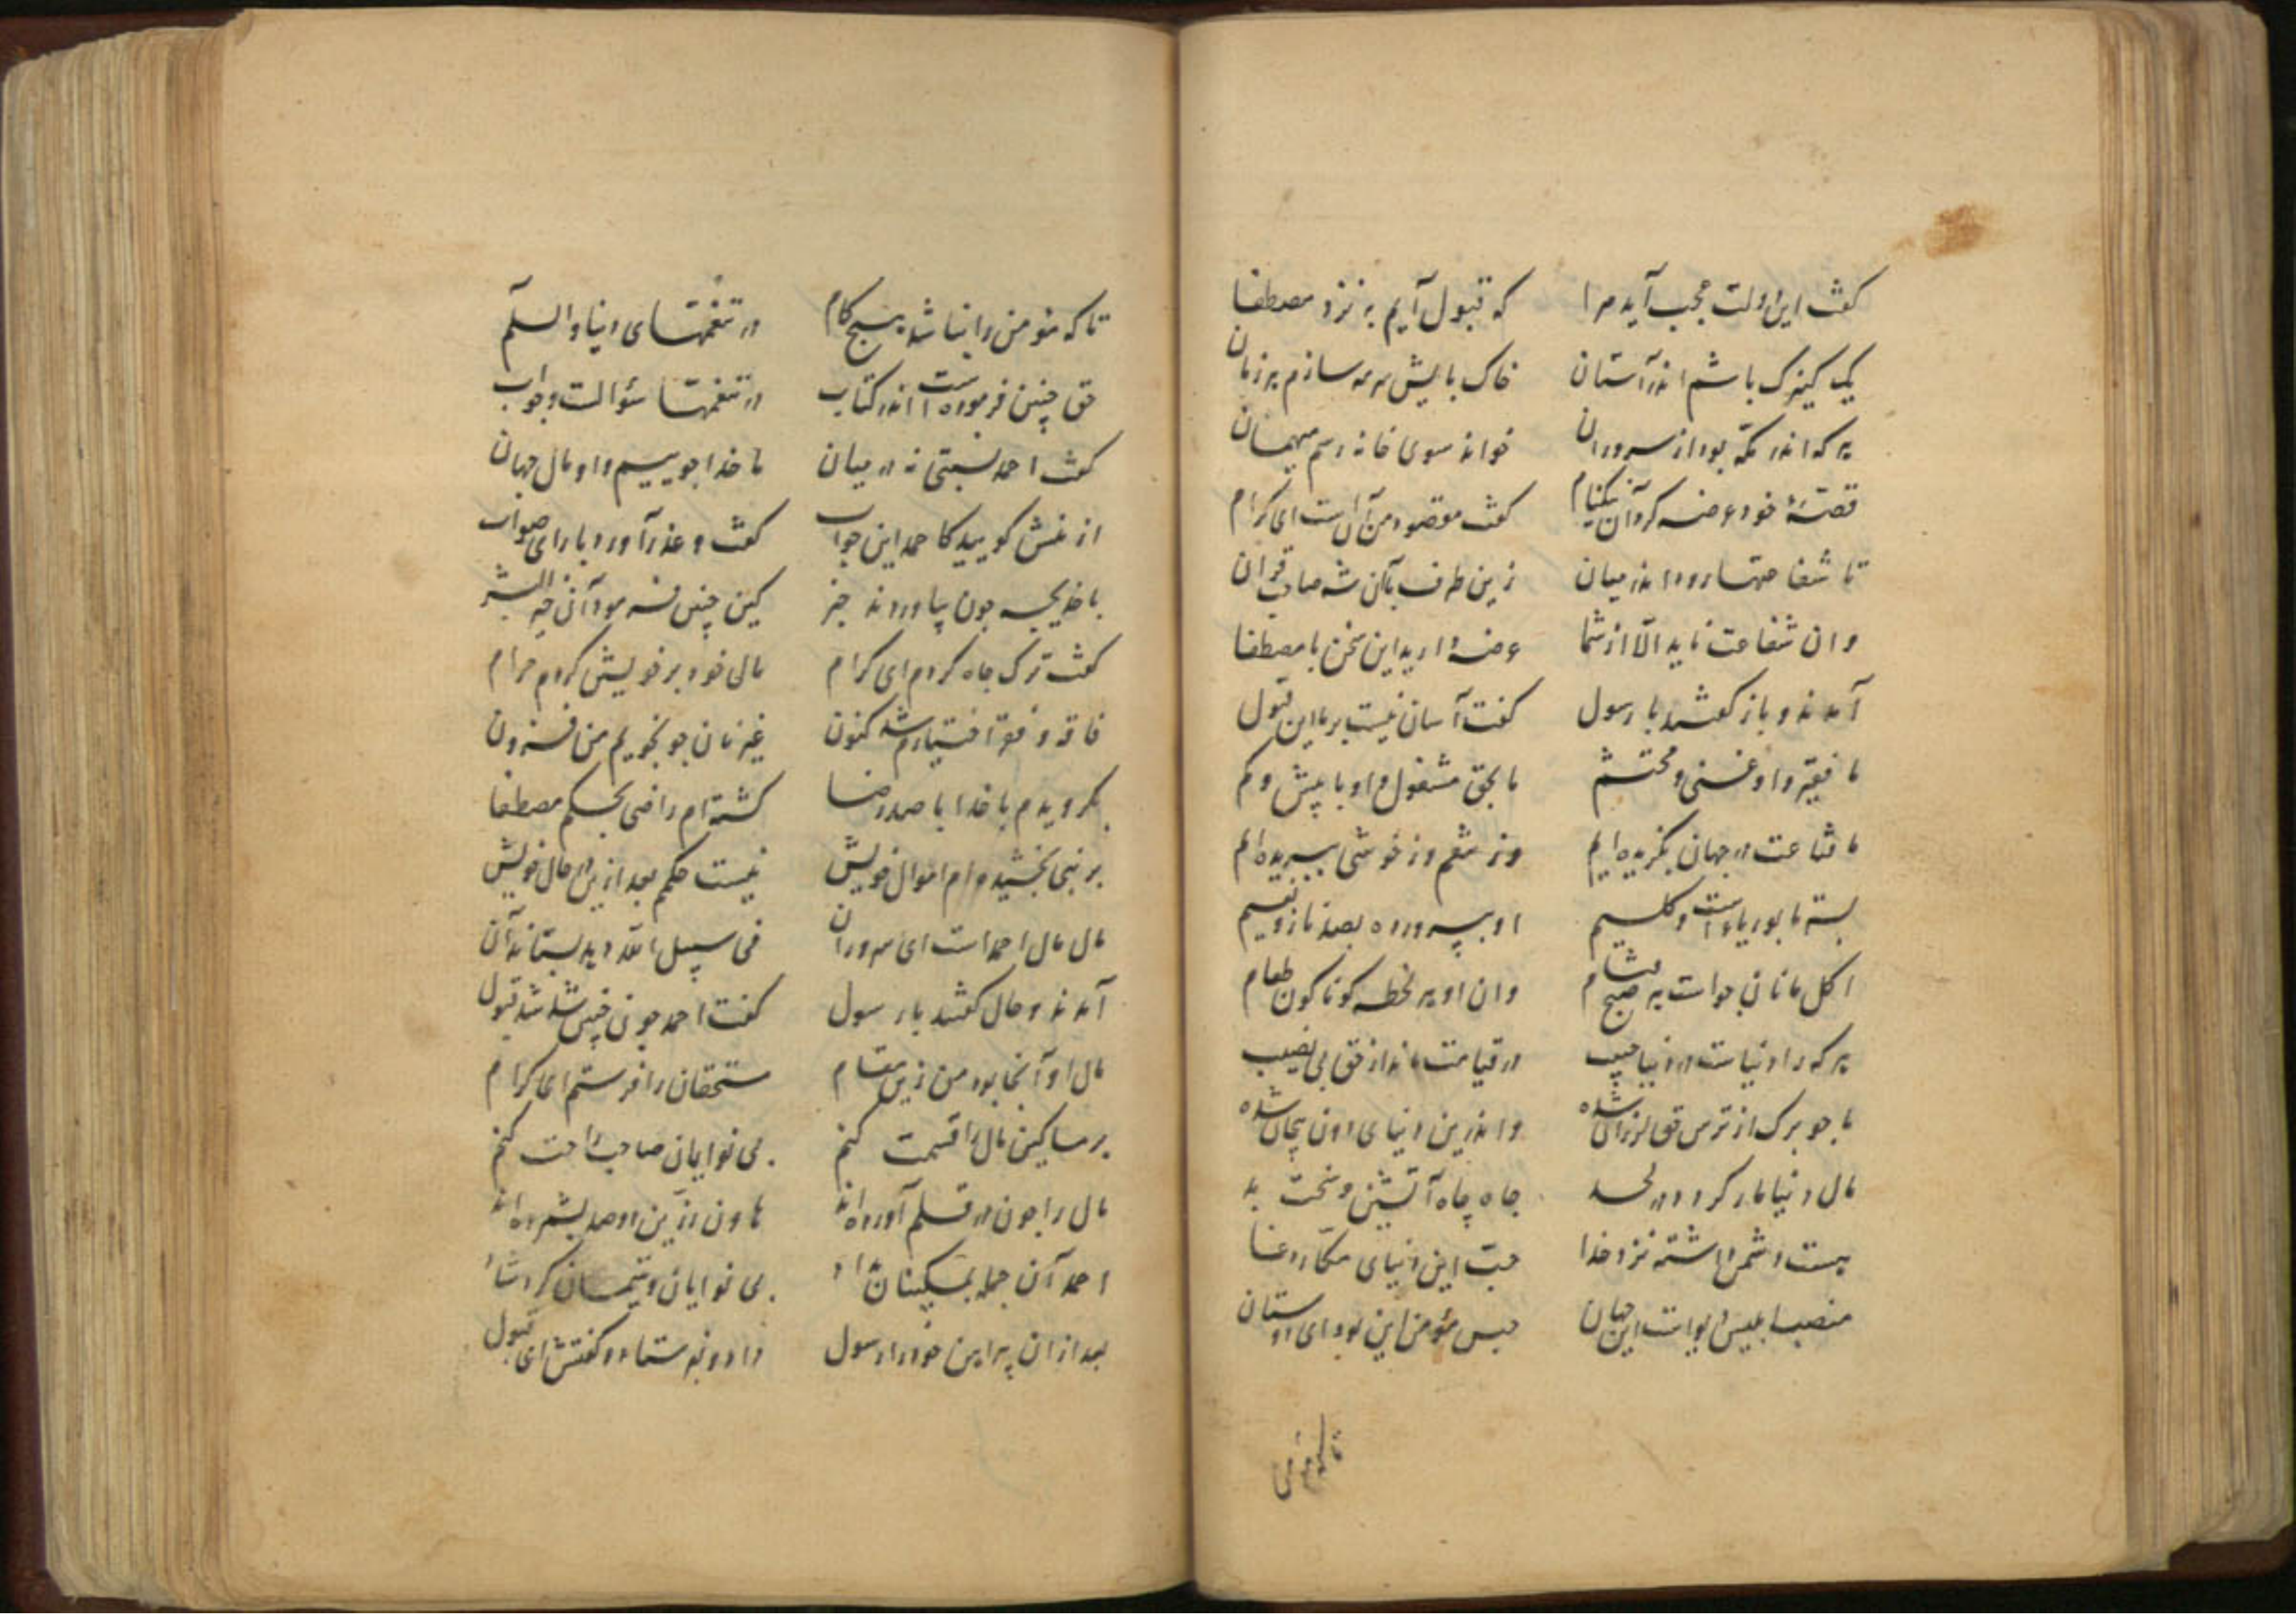 گفت این دولت عجب آید مرا که قبول آیم به نزد مصطفا
یک کنیزک باشم اندر آستان خاک بالیش سرمه سازم هر زمان
هر که اندر مکه بود از سروران خواند سوی خانه رسم میهمان
قصهٔ خود عرضه کرد آن نیکنام گفت مقصود من آن است ای کرام
تا شفاعتها رود اندر میان زین طرف با آن شه صاحب قران
وان شفاعت ناید الا از شما عرضه دارید این سخن با مصطفا
آمدند و باز گفتند با رسول گفت آسان نیست بر ما این قبول
ما فقیر و او غنی و محتشم ما بحق مشغول و او با پیش و کم
ما قناعت در جهان بگزیده‌ایم وز تنعم وز خوشی ببریده‌ایم
بستر ما بوریا است و گلیم او بپرورده بصد ناز و نعیم
اکل ما نان جو است هر صبح و شام وان او هر لحظه گوناگون طعام
هر که را دنیاست در دنیا حبیب در قیامت ماند از حق بی نصیب
ما چو برگ از ترس حق لرزان شده و اندرین دنیای دون پیچان شده
مال دنیا مار گردد در لحد جاه چاه آتشین و سخت بد
هست دشمن داشته نزد خدا حب این دنیای مکار دغا
منصب ابلیس بود است این جهان حبس مؤمن این بود ای دوستان
تا که مؤمن
تا که مؤمن را نباشد هیچ کام در تنعمهای دنیا والسلام
حق چنین فرموده است اندر کتاب در تنعمها سؤالست و جواب
گفت احمد نسبتی نه در میان ما خدا جوییم و او مال جهان
از منش گویید کاحمد این جواب گفت و عذر آورد با رای صواب
با خدیجه چون بیاوردند خبر کین چنین فرمود آن خیر البشر
گفت ترک جاه کردم ای کرام مال خود بر خویش کردم حرام
فاقه و فقر اختیارم شد کنون غیر نان جو نجویم من فزون
بگرویدم با خدا با صد رضا گشته‌ام راضی بحکم مصطفا
بر نبی بخشیده‌ام اموال خویش نیست حکمم بعد ازین در مال خویش
مال مال احمد است ای سروران فی سبیل الله دهد بستاند آن
آمدند و حال گفتند با رسول گفت احمد چون چنین شد شد قبول
مال او آنجا بود من زین مقام مستحقان را فرستم ای کرام
بر مساکین مال را قسمت کنم بی نوایان صاحب راحت کنم
مال را چون در قلم آورده‌اند هاون زرین دو صد بشمرده‌اند
احمد آن جمله بمسکینان داد بی نوایان و یتیمان کرد شاد
بعد از ان پیراهن خود را رسول داد و بفرستاد و گفتش ای قبول